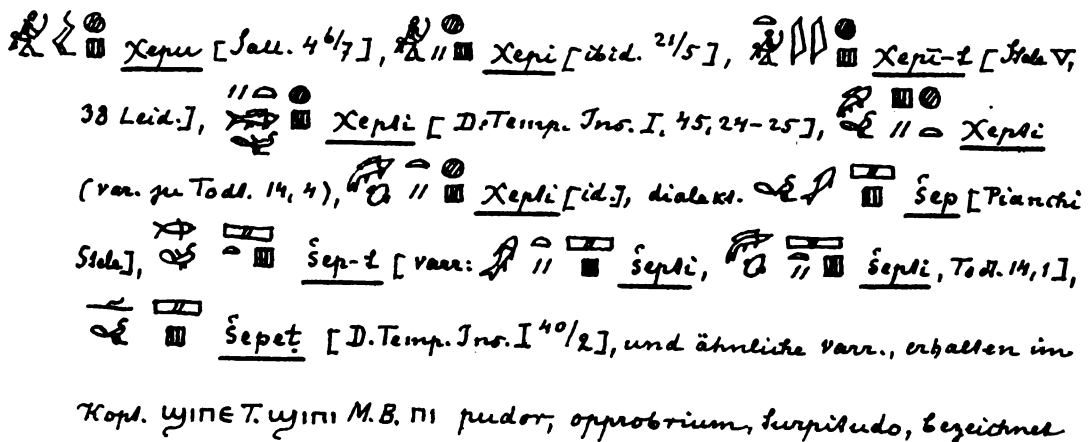 χepu [Sall. 4 6/7], χepi [ibid. 21/5], χepī-t [Stele V,
38 Leid.], χepti [D. Temp. Ins. I, 45, 24-25], χepti
(var. zu Todt. 14, 4), χepti [id.], dialekt. šep [Pianchi
Stele], šep-t [varr: šepti, šepti, Todt. 14, 1],
šepeṭ [D. Temp. Ins. I 40/2], und ähnliche varr., erhalten im
Kopt. ϣⲓⲡⲉ T. ϣⲓⲡⲓ M.B. ⲡⲓ pudor, opprobrium, turpitudo, bezeichnet